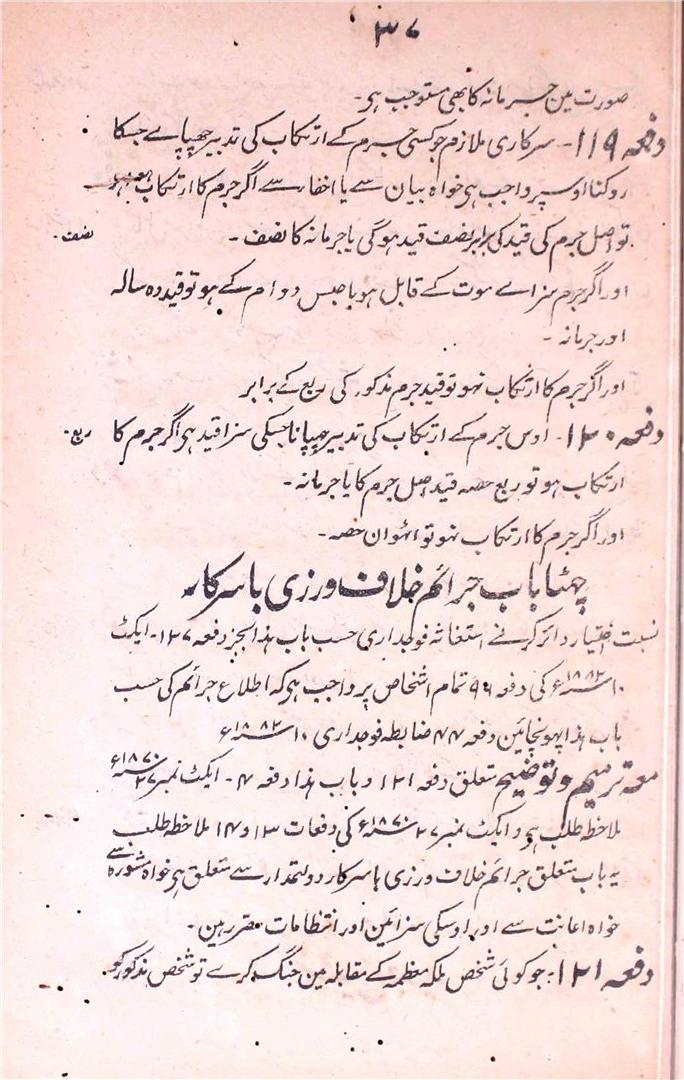 ۳۷
صورت مین جرمانہ کا بھی مستوجب ہی۔
دفعہ ۱۱۹۔ سرکاری ملازم جو کسی جرم کے ارتکاب کی تدبیر چھپاے جسکا
روکنا اوسپر واجب ہی خواہ بیان سے یا اخفا سے اگر جرم کا ارتکاب
تو اصل جرم کی قید کی برابر نصف قید ہوگی یا جرمانہ کا نصف۔ نصف۔
اور اگر جرم سزاے موت کے قابل ہو یا حبس دوام کے ہو تو قید دہ سالہ
اور جرمانہ۔
اور اگر جرم کا ارتکاب نہو تو قید جرم مذکور کی ربع کے برابر
دفعہ ۱۲۰۔ اوس جرم کے ارتکاب کی تدبیر چھپانا جسکی سزا قید ہی اگر جرم کا ربع۔
ارتکاب ہو تو ربع حصہ قید اصل جرم کا یا جرمانہ۔
اور اگر جرم کا ارتکاب نہو تو اٹھوان حصہ۔
چھٹا باب جرائم خلاف ورزی با سرکار
نسبت اختیار دائر کرنے استغاثہ فوجداری حسب باب ہذا بجز دفعہ ۱۲۷۔ ایکٹ
۱۰ ۱۸۸۲ء کی دفعہ ۱۹۶ تمام اشخاص پر واجب ہی کہ اطلاع جرائم کی حسب
باب ہذا پہونچائین دفعہ ۴۴ ضابطہ فوجداری ۱۰ ۱۸۸۲ء
معہ ترمیم و توضیح متعلق دفعہ ۱۲۱ و باب ہذا دفعہ ۴۔ ایکٹ نمبر ۲۷ ۱۸۷۰ء
ملاحظہ طلب ہی و ایکٹ نمبر ۲۷ ۱۸۷۰ء کی دفعات ۱۳ و ۱۴ ملاحظہ طلب
یہ باب متعلق جرائم خلاف ورزی با سرکار دولتمدار سے متعلق ہی خواہ مشورہ سے
خواہ اعانت سے اور اوسکی سزائین اور انتظامات مقرر ہین۔
دفعہ ۱۲۱۔ جو کوئی شخص ملکہ معظمہ کے مقابلہ مین جنگ کرے تو شخص مذکور کو